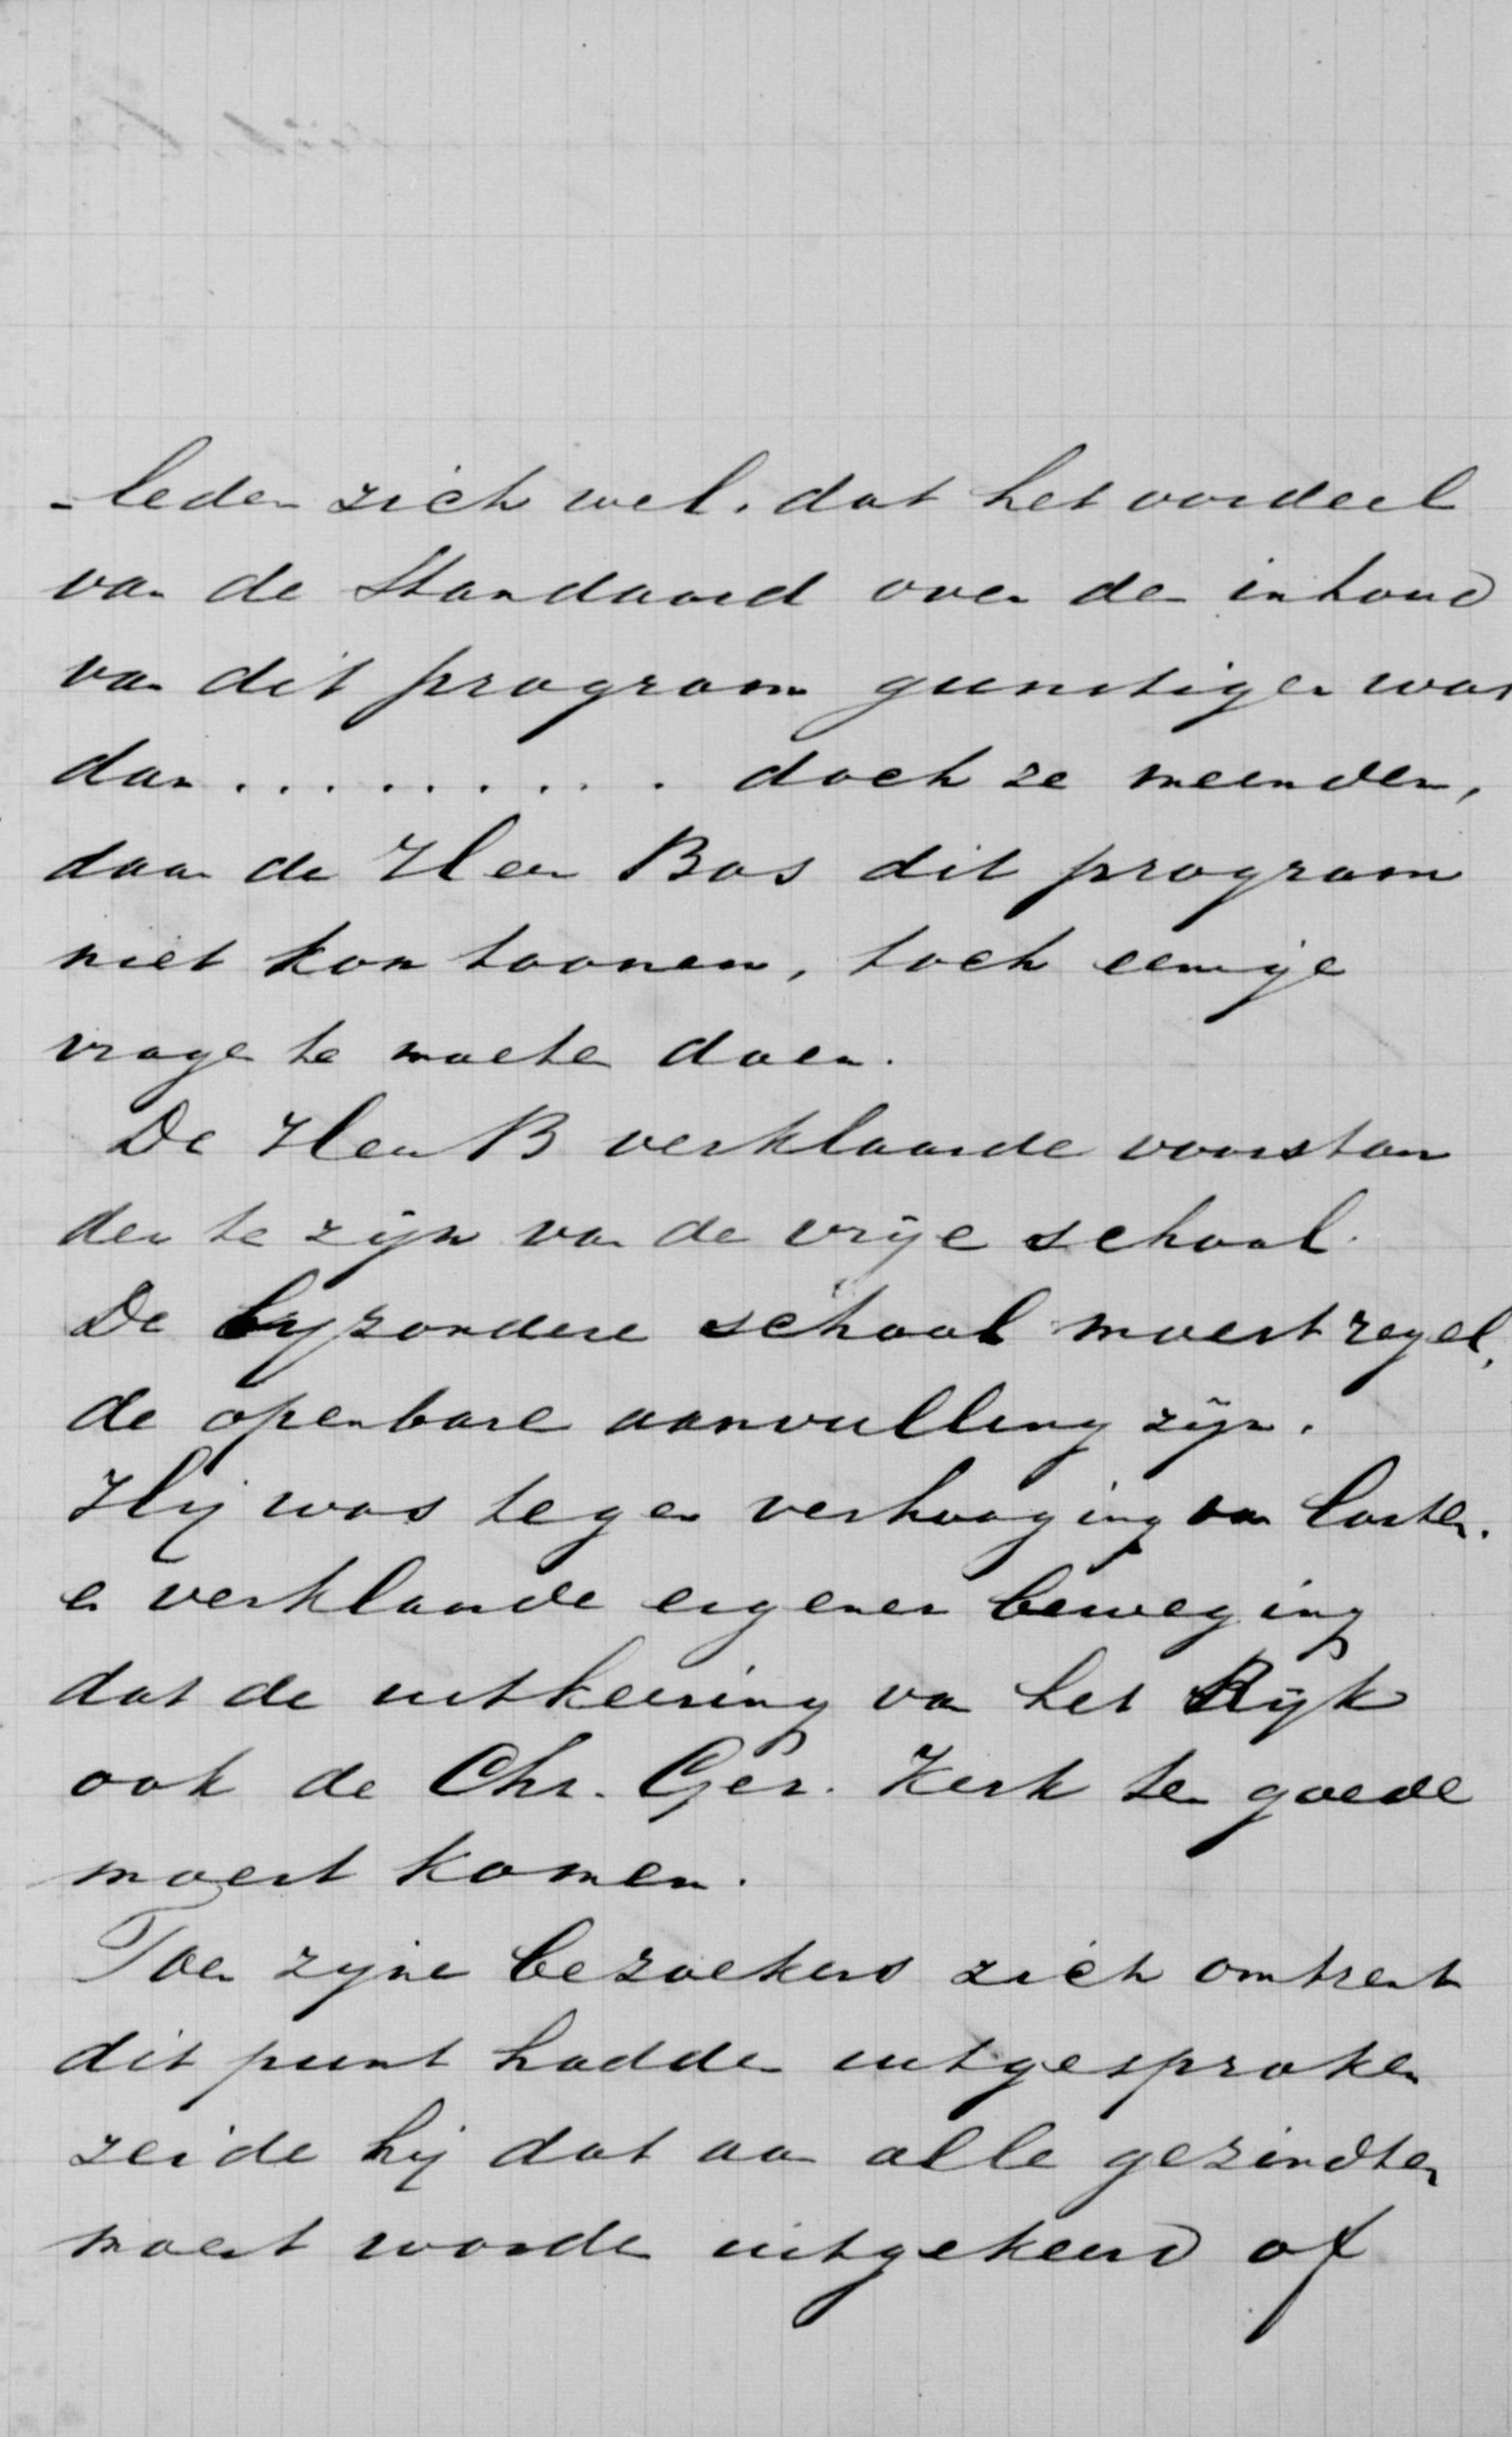 -leden zich wel. dat het oordeel
van de Standaard over den inhoud
van dit program gunstiger was
dan .......... doch ze meenden,
daar de Heer Bos dit program
niet kon toonen, toch eenige
vragen te moeten doen.
De Heer B verklaarde voorstan
der te zijn van de vrije school.
De byzondere school moest regel,
de openbare aanvulling zijn.
Hij was tegen verhooging van lasten.
en verklaarde eigener beweging
dat de uitkeering van het Rijk
ook de Chr. Ger. Kerk ten goede
moest komen.
Toen zijne bezoekers zich omtrent
dit punt hadden uitgesproken
zeide hij dat aan alle gezindten
moest worden uitgekeerd of